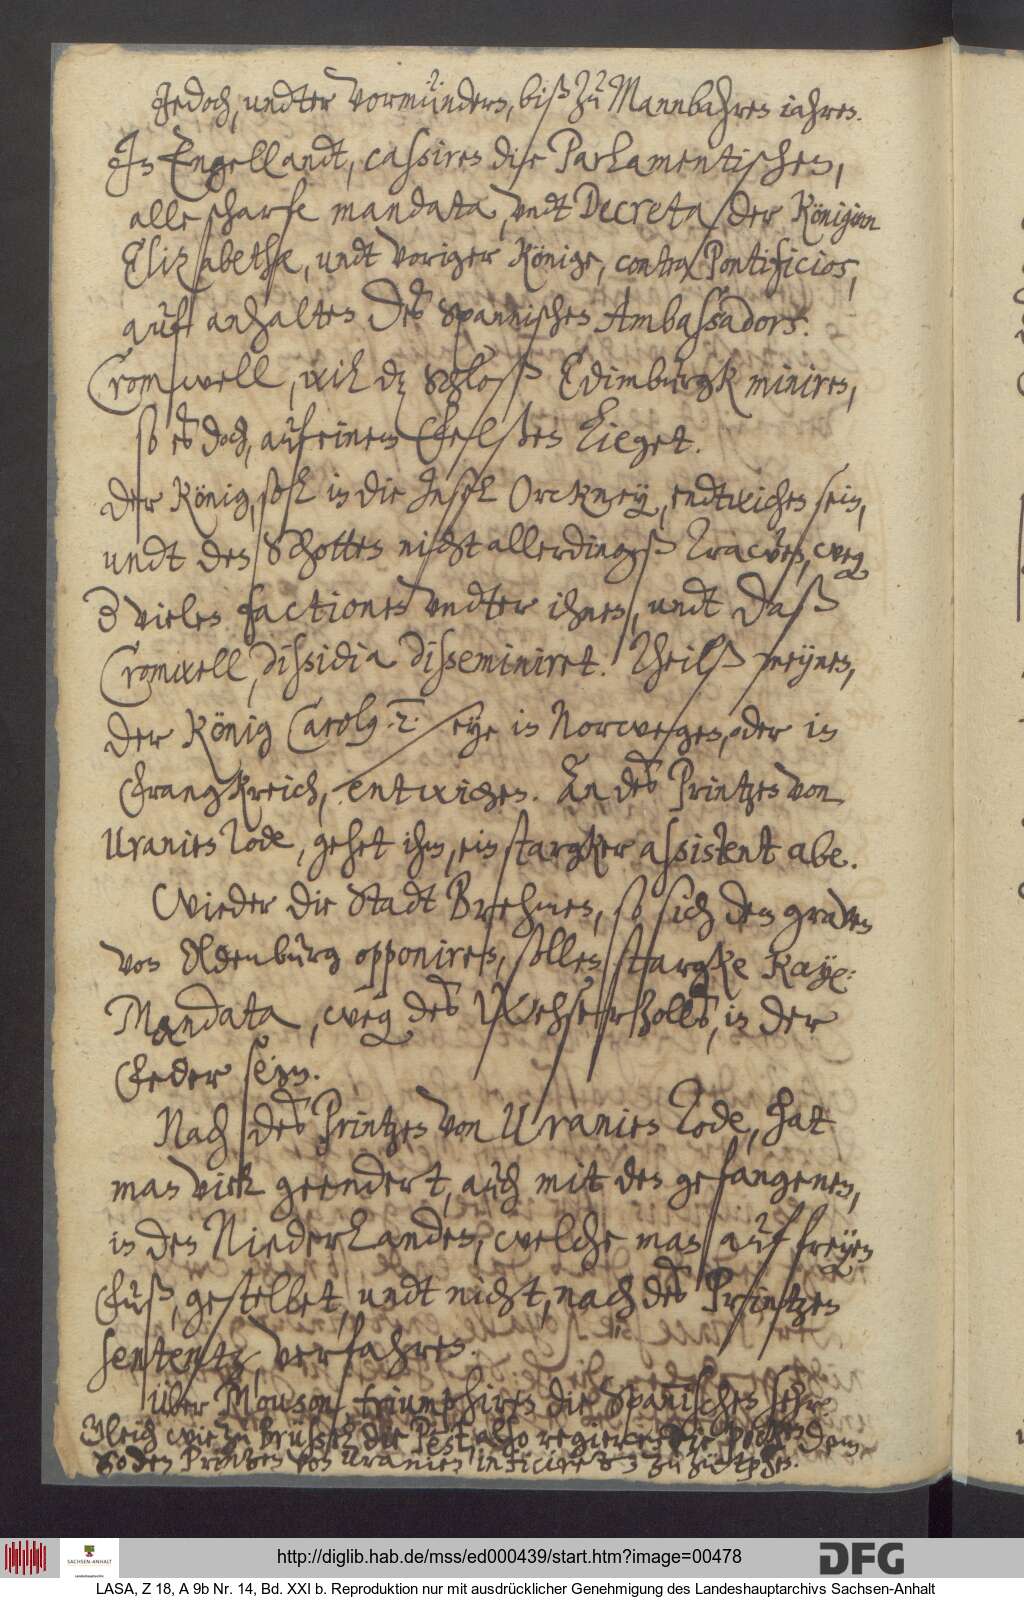 Jedoch, undter vormündern, biß zu Mannbahren iahren.
In Engellandt, cassiren die Parlamentischen,
alle scharfe mandata, undt Decreta der Königinn
Elizabethæ, undt voriger Könige, contra Pontificios,
auf anhalten des Spannischen Ambassadors.
Cromwell, will dz Schloß Edimburgk miniren,
so es doch, auf einem Felßen lieget.
Der König, soll in die Insel Orckney, endtwichen sein,
undt den Schotten nicht allerdingß trawen, weg
vielen factionen undter ihnen, undt daß
Cromwell, dissidia disseminiret. Theilß meynen,
der König Carolg .2. seye in Norwegen, oder in
Frangkreich, entwichen. An des Printzen von
Uranien Tode, gehet ihm, ein stargker assistent abe.
Wieder die Stadt Brehmen, so sich dem graven
von Oldenburg opponiren, sollen stargke Kaye:
Mandata, weg des Wehserzolls, in der
Feder sein.
Nach des Printzen von Uranien Tode, hat
man viel geendert, auch mit den gefangenen,
in den Niederlanden, welche man auf freyen
Fuß, gestellet, undt nicht, nach des Printzen
sententz verfahren.
über Mouson, triumphiren die Spanischen sehr
Gleich wie zu Brüssel die Pest, also regieren die Pocken
so den Printzen von Uranien inficiret
http://diglib.hab.de/mss/ed000439/start.htm?image=00478
DFG
SACHSEN-ANHALT
LASA, Z 18, A 9b Nr. 14, Bd. XXI b. Reproduktion nur mit ausdrücklicher Genehmigung des Landeshauptarchivs Sachsen-Anhalt